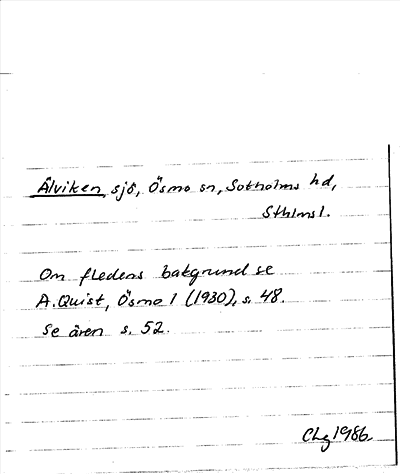 Älviken, sjö, Ösmo sn, Sotholms hd,
Sthlms l.
Om fledens bakgrund se
A. Quist, Ösmo 1 (1930), s. 48.
Se även s. 52.
Chg 1986.